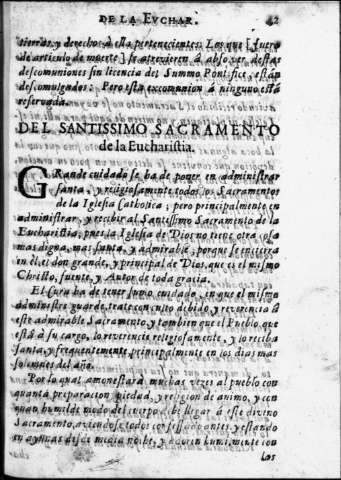 DE LA EVCHAR. 42
tierras, y derechos á ella pertenecientes: Los que [fuera
de articulo de muerte] se atrevieren á absolver destas
descomuniones sin licencia del Summo Pontifice, están
descomulgados: Pero esta excomunion á ninguno está
reservada.
DEL SANTISSIMO SACRAMENTO
de la Eucharistia.
GRande cuidado se ha de poner en administrar
santa, y religiosamente todos los Sacramentos
de la Iglesia Catholica; pero principalmente en
administrar, y recibir al Santissimo Sacramento de la
Eucharistia, pues la Iglesia de Dios no tiene otra cosa
mas digna, mas santa, y admirable, porque se encierra
en él, el don grande, y principal de Dios, que es el mismo
Christo, fuente, y Autor de toda gracia.
El Cura ha de tener sumo cuidado, en que el mismo
administre, guarde, trate con culto debido, y reverencia á
este admirable Sacramento, y tambien que el Pueblo, que
está á su cargo, lo reverencie religiosamente, y lo reciba
santa, y frequentemente, principalmente en los dias mas
solemnes del año.
Por lo qual amonestará muchas vezes al pueblo con
quanta preparacion, piedad, y religion de animo, y con
quan humilde modo del cuerpo debe llegar á este divino
Sacramento, aviendose todos confessado antes, y estando
en ayunas desde media noche, y adoren humilmente con
los